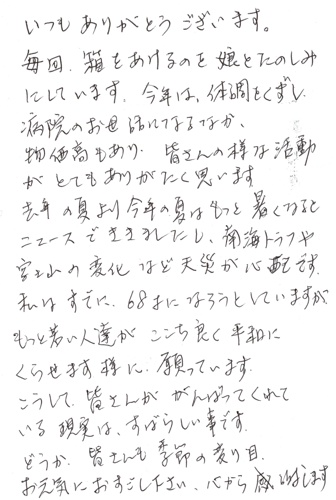 いつもありがとうございます。
毎回、箱をあけるのを娘とたのしみ
にしています。今年は、体調をくずし、
病院のお世話になるなか、
物価高もあり、皆さんの様な活動
がとてもありがたく思います
去年の夏より今年の夏はもっと暑くなると
ニュースできましたし、南海トラフや
富士山の変化など天災が心配です。
私はすでに、68才になろうとしていますが
もっと若い人達がここち良く平和に
くらせます様に、願っています。
こうして、皆さんががんばってくれて
いる現実は、すばらしい事です。
どうか、皆さんも季節の変り目、
お元気におすごし下さい。心から感謝します